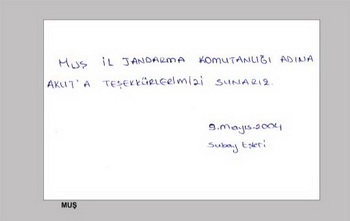 MUŞ İL JANDARMA KOMUTANLIĞI ADINA
AKUT'A TEŞEKKÜRLERİMİZİ SUNARIZ.
9.Mayıs.2004
Subay Eşleri
MUŞ